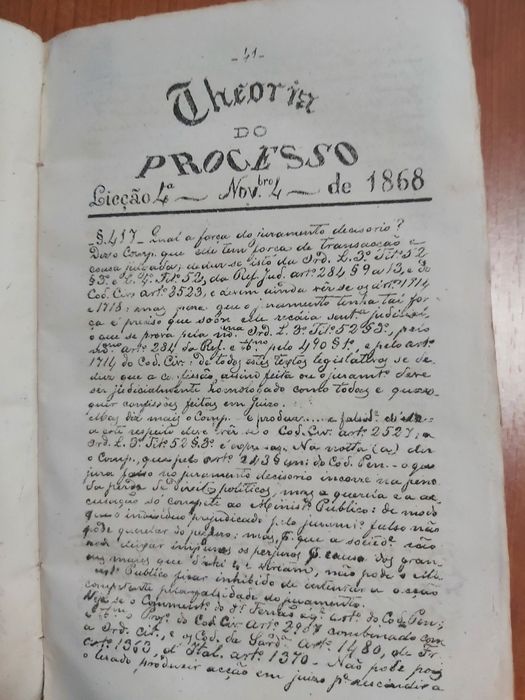 - 41 -
Theoria
DO
PROCESSO
Licção 4ª — Nov.bro 4 — de 1868
§. 417 - Qual a força do juramento decisorio?
Diz o Comp. que elle tem força de transacção e
causa julgada; deduz-se isto da Ord. L. 3º Titº 52
§ 3º e L. 4. Titº 52, da Ref. Jud. artº 284 § 9 a 13, e do
Cod. Civ. artº 3523, e devem ainda vêr-se os artºs 1714
e 1715; mas para que o juramento tenha tal for-
ça é preciso que sobre elle recáia sentª judicial
o que se prova pela Ord. L. 3º Titº 52 § 3º, pelo
artº 284 da Ref. e pelo 490 § 1º, e pelo artº
1714 do Cod. Civ: De todos estes textos legislativos se de-
duz que a confissão assim feita ou o juramtº deve
ser judicialmente homologado como todas e quaes-
quer confissões feitas em juizo.
Mas diz mais o Comp. e produz..... e
a este respeito deve vêr-se o Cod. Civ. artº 2527, a
Ord. L. 3º Titº 52 § 3º é expressa. Na notta (a) diz
o Comp. que pelo artº 243 § uni do Cod. Pen. - o que
jura falso no juramento decisorio incorre na pena
da perda de Direitos politicos, mas a querela e a ac-
cusação só compete ao Ministº Publico: de modo
que o individuo prejudicado pelo juramtº falso não
póde querelar do perjuro: mas, que a sociedº não
deixar impunes os perjuros causa dos gran-
des males que viriam, não póde o Mi-
nistº Publico ficar inhibido de intentar a acção
competente pela falsidade do juramento.
Veja-se o Commentº do Dr Ferrão artº do Cod. Pen;
Projº do Cod. Civ. artº combinado com
a Ord. cit., e os Cod. da Sardª artº 1480, de Fr.
artº 1363, d'Ital. artº 1370. - Não póde pois
o lesado produzir acção em juizo pª rescindir a